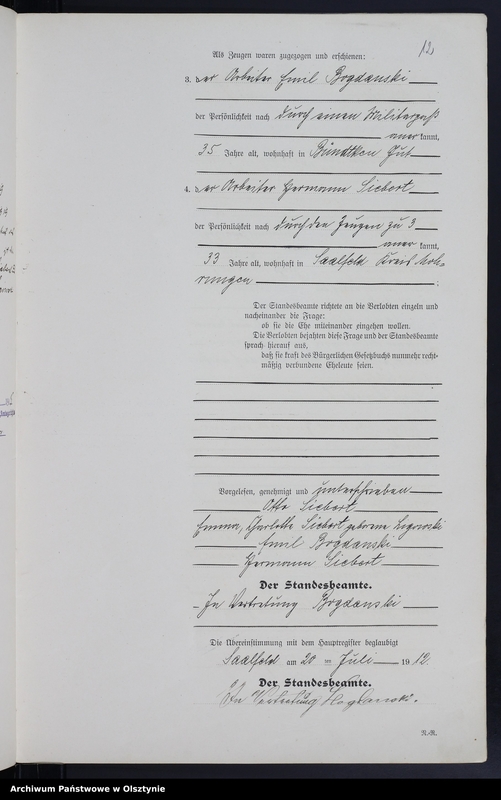 12.
Als Zeugen waren zugezogen und erschienen:
3. der Arbeiter Emil Bogdanski
der Persönlichkeit nach durch einen Militärpaß
anerkannt,
35 Jahre alt, wohnhaft in Gut
4. der Arbeiter Hermann Siebert
der Persönlichkeit nach durch den Zeugen zu 3
anerkannt,
33 Jahre alt, wohnhaft in Saalfeld Kreis Moh-
rungen.
Der Standesbeamte richtete an die Verlobten einzeln und
nacheinander die Frage:
ob sie die Ehe miteinander eingehen wollen.
Die Verlobten bejahten diese Frage und der Standesbeamte
sprach hierauf aus,
daß sie kraft des Bürgerlichen Gesetzbuchs nunmehr recht-
mäßig verbundene Eheleute seien.
Vorgelesen, genehmigt und unterschrieben
Otto Siebert
Emma, Charlotte Siebert geborene
Emil Bogdanski
Hermann Siebert
Der Standesbeamte.
In Vertretung Bogdanski
Die Übereinstimmung mit dem Hauptregister beglaubigt
Saalfeld am 20 ten Juli 1912.
Der Standesbeamte.
In Vertretung
R.-R.
Archiwum Państwowe w Olsztynie